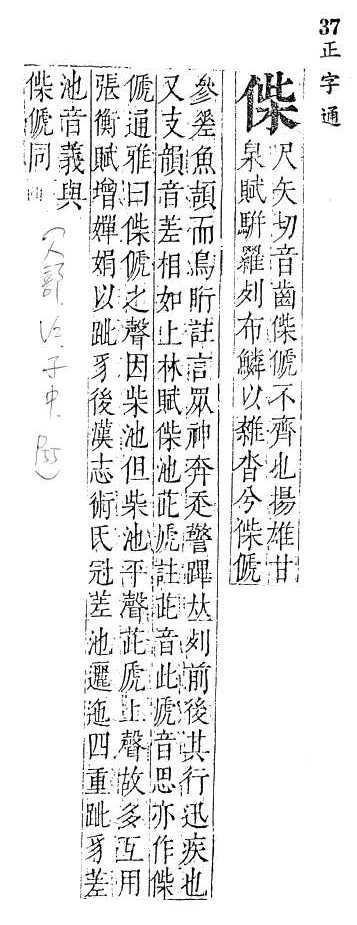 37正字通
傑
尺矢切音齒傑傂不齊也揚雄甘
泉賦駢羅列布鱗以雜沓兮傑傂
參差魚頡而鳥䀪註言眾神奔走警蹕夶列前後其行迅疾也
又支韻音差相如上林賦傑池茈虒註茈音此虒音思亦作傑
傂通雅曰傑傂之聲因柴池但柴池平聲茈虒上聲故多互用
張衡賦增嬋娟以跐豸後漢志術氏冠差池邐迤四重跐豸差
池音義與
傑傂同